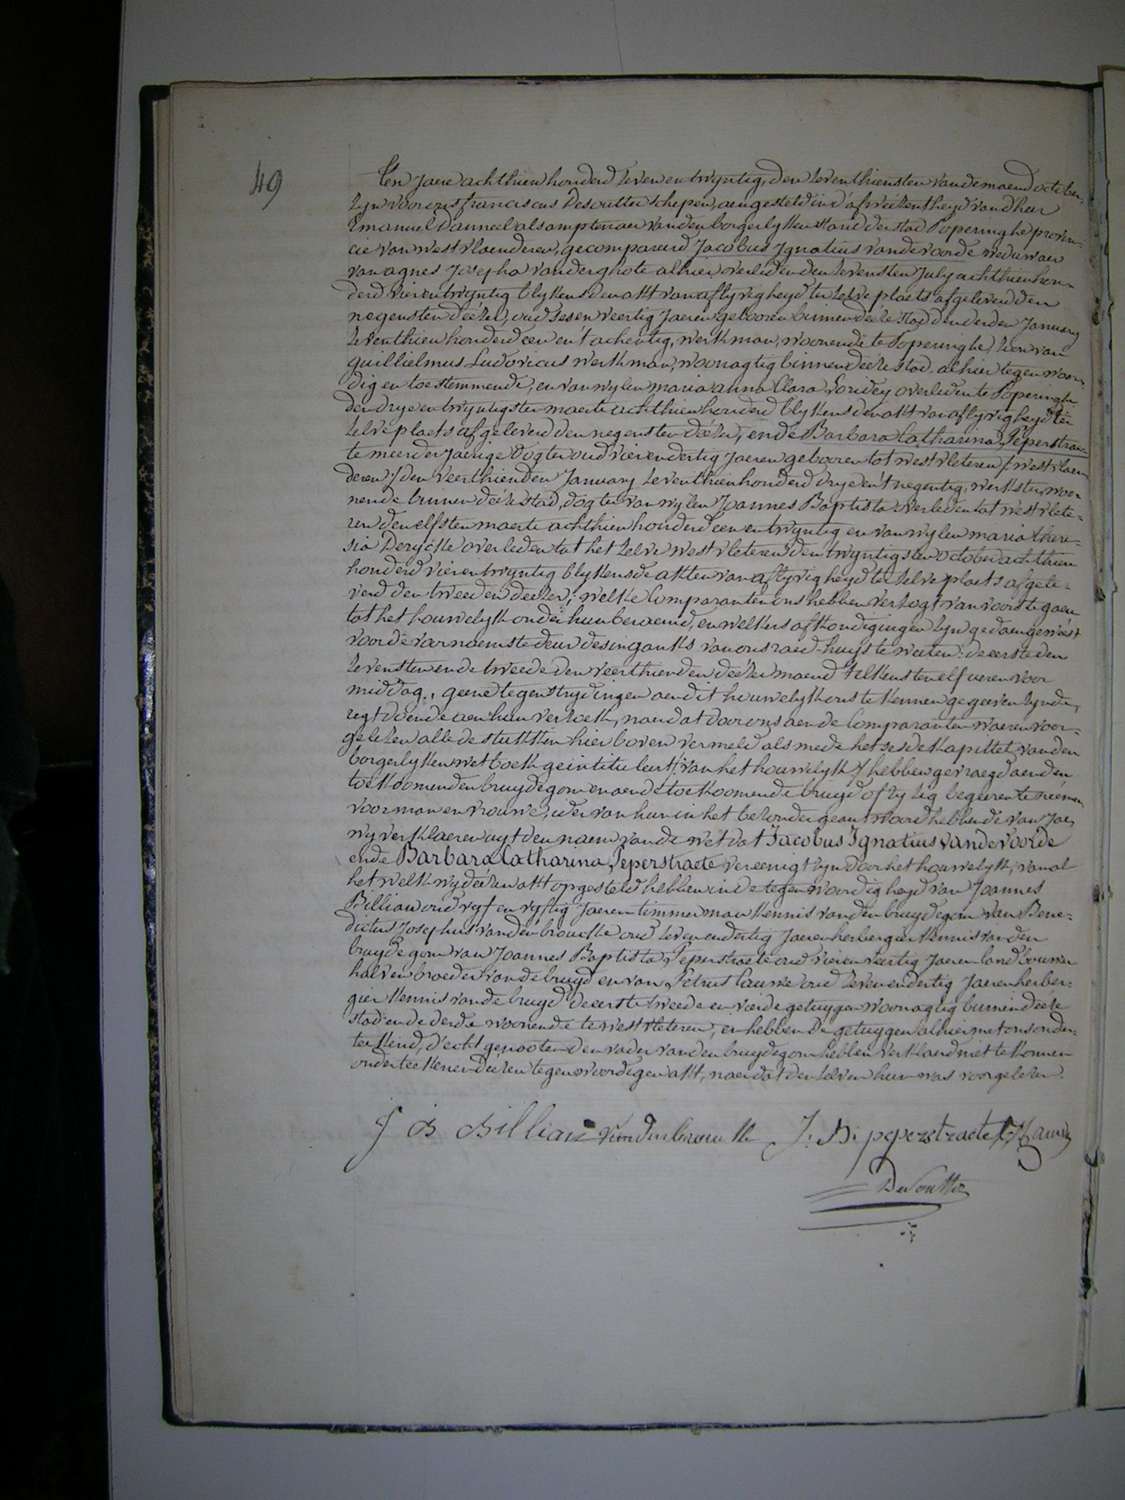 49
Ten Jaere achthien honderd zeven en twyntig, den zeventhiensten van de maend october,
zyn voor ons franciscus Desoutter schepen, aengesteld in d'afweezentheyd van d'heer
Emanuel Danneel als amptenaer van den borgerlyken stand der stad Poperinghe provin-
cie van westvlaenderen, gecompareerd Jacobus Ignatius vandevoorde weduwaer
van agnes Josepha vanderghote alhier overleden den zevensten July achthien hon-
derd vierentwyntig blykens den akt van aflyvigheyd ter zelve plaets afgeleverd den
negensten deézer, oud sesenveertig Jaeren gebooren binnen deéze stad den derden January
zeventhien honderd een en't achentig, werkman, woonende te Poperinghe, zoon van
guillielmus Ludovicus werkman, woonagtig binnen deéze stad alhier tegenwoor-
dig en toestemmende, en van wylen maria anna Clara overleden te Poperinghe
den dryentwyntigsten maerte achthien honderd blykens den akt van aflyvigheyd ter
zelve plaets afgeleverd den negensten deézer, ende Barbara Catharina Peperstrae-
te meerderjaerige Dogter oud vierendertig Jaeren gebooren tot westvleteren (westvlaen-
deren) den veerthienden January zeventhien honderd drye en't negentig, werkster, woo-
nende binnen deéze stad, dogter van wylen Joannes Baptista overleden tot westvlete-
ren den elfsten maerte achthien honderd een en twyntig en van wylen maria there-
sia Derycke overleden tot het zelve westvleteren den twyntigsten october achthien
honderd vierentwyntig blykens de akten van aflyvigheyd ter zelve plaets afgele-
verd den tweeden deézer; welke Comparanten ons hebben verzogt van voorts te gaen
tot het houwelyk onder hun beraemd, en welkers afkondigingen zyn gedaen geweést
voor de vornaemste deur des ingangs van ons raed-huys te weeten: de eerste den
zevensten ende tweede den veerthienden deézer maend telkens ten elf ueren voor
middag, geene tegenstrydingen aen dit houwelyk ons te kennen gegeeven zynde,
regt doende aen hun verzoek, naer dat door ons aen de Comparanten waeren voor-
geleézen alle de stukken hier boven vermeld als mede het sesde kapittel van den
borgerlyken wetboek geintituleert (van het houwelyk) hebben gevraegd aen den
toekoomenden bruydegom en aen de toekoomende bruyd of zy zig begeeren te neémen
voor man en vrouwe, ider van hun in het bezonder geantwoord hebbende van Jae,
wy verklaeren uyt den naem van de wet dat Jacobus Ignatius vandevoorde
ende Barbara Catharina Peperstraete vereenigt zyn door het houwelyk; van al
het welk wy deézen akt opgesteld hebben in de tegenwoordigheyd van Joannes
Billiau oud vyf en vyftig Jaeren timmerman kennis van den bruydegom van Bene-
dictus Josephus vandenbroucke oud zevenendertig Jaeren herbergier kennis van den
bruydegom van Joannes Baptista Peperstraete oud vierenveertig Jaeren landbouwer
halven broeder van de bruyd en van Petrus Cauwe oud zevenendertig Jaeren herber-
gier kennis van de bruyd de eerste tweede en vierde getuygen woonagtig binnen deéze
stad en de derde woonende te westvleteren, en hebben de getuygen alhier met ons onder-
teekend, d'echtgenooten den vader van den bruydegom hebben verklaerd niet te konnen
onderteekenen deézen tegenwoordigen akt, naer dat den zelven hun was voorgeleézen.
J B Billiau vandenbroucke J: B: peperstraete P: Cauwe
Desoutter